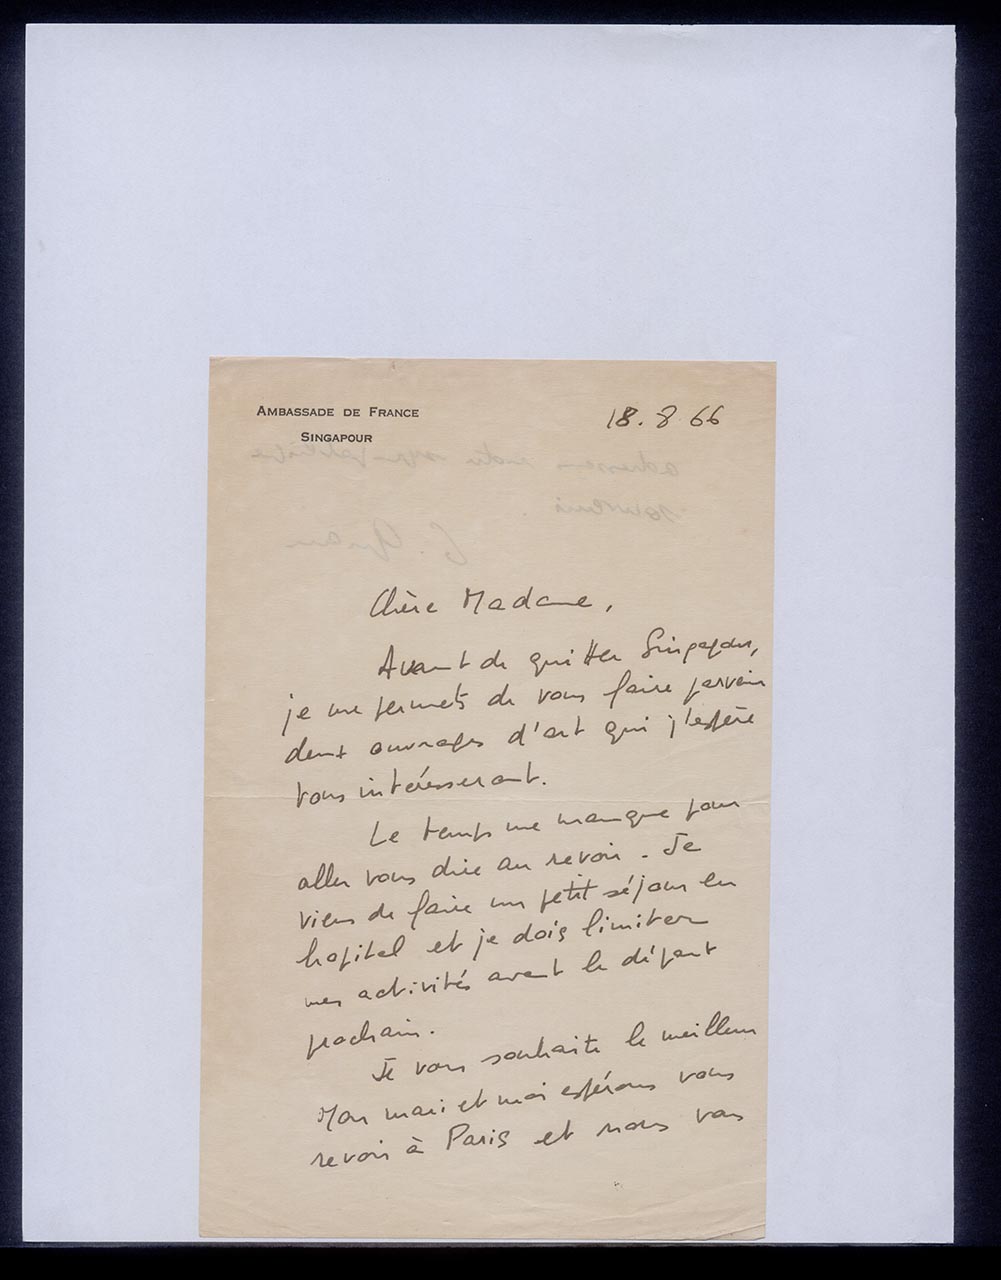 AMBASSADE DE FRANCE
SINGAPOUR
18.8.66
Chère Madame,
Avant de quitter Singapour,
je me permets de vous faire parvenir
deux ouvrages d'art qui j'espère
vous intéresseront.
Le temps me manque pour
aller vous dire au revoir. Je
viens de faire un petit séjour en
hopital et je dois limiter
mes activités avant le départ
prochain.
Je vous souhaite le meilleur
Mon mari et moi espérons vous
revoir à Paris et nous vous